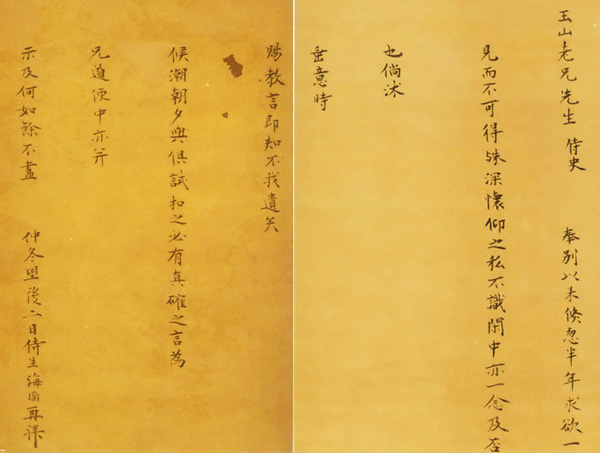 玉山老兄先生 侍史 奉別以来倏忽半年求欲一
見而不可得殊深懷仰之私不識閑中亦一念及否
也倘沐
垂意時
賜教言即知不我遺矣
候潮朝夕與俱試扣之必有真確之言為
兄道便中亦并
示及何如餘不盡 仲冬望後二日侍生海瑞再拜